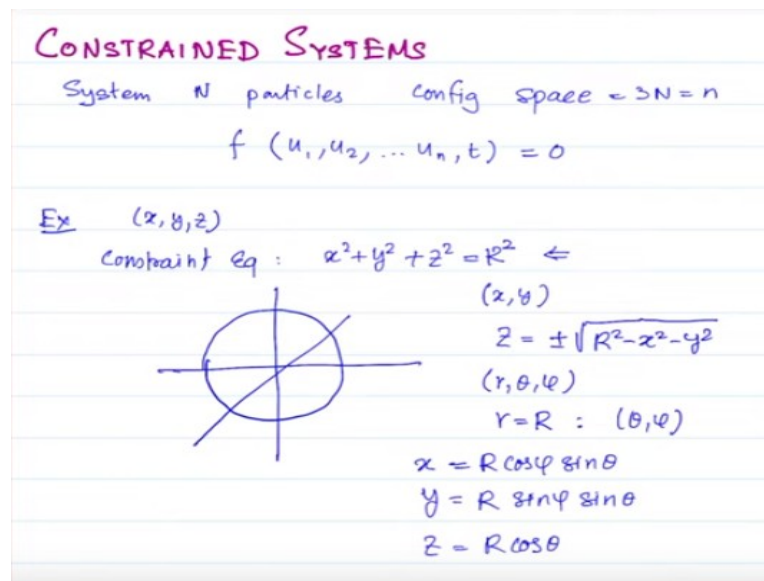 CONSTRAINED SYSTEMS
System N particles config space = 3N = n
f (u₁, u₂, ... uₙ, t) = 0
Ex (x, y, z)
Constraint Eq : x² + y² + z² = R² ⇐
(x, y)
z = ±√R²-x²-y²
(r, θ, φ)
r = R : (θ, φ)
x = R cosφ sinθ
y = R sinφ sinθ
z = R cosθ